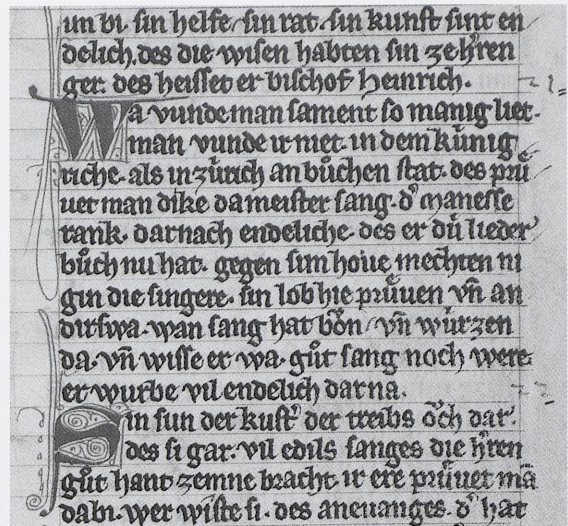 un bi. sin helfe. sin rat. sin kunst sint en
delich. des die wisen habten sin ze h̾ren
ger. des heisset er bischof heinrich.
Wa vunde man sament so manig liet.
man vunde ir niet. in dem kúnig
riche. als in zúrich an bůchen stat. des prů
uet man dike da meister sang. d̾ manesse
rank. darnach endeliche. des er dú lieder
bůch nu hat. gegen sim houe mechten ni
gin die singere. sin lob hie průuen vn̄ an
dirswa. wan sang hat bon̄ vn̄ wúrzen
da. vn̄ wisse er wa. gůt sang noch were.
er wurbe vil endelich darna.
Sin sun der kust̾ der treibs ŏch dar.
des si gar. vil edils sanges die h̾ren
gůt hant zemne bracht. ir ere průuet mā
dabi. wer wiste si. des aneuanges. d̾ hat